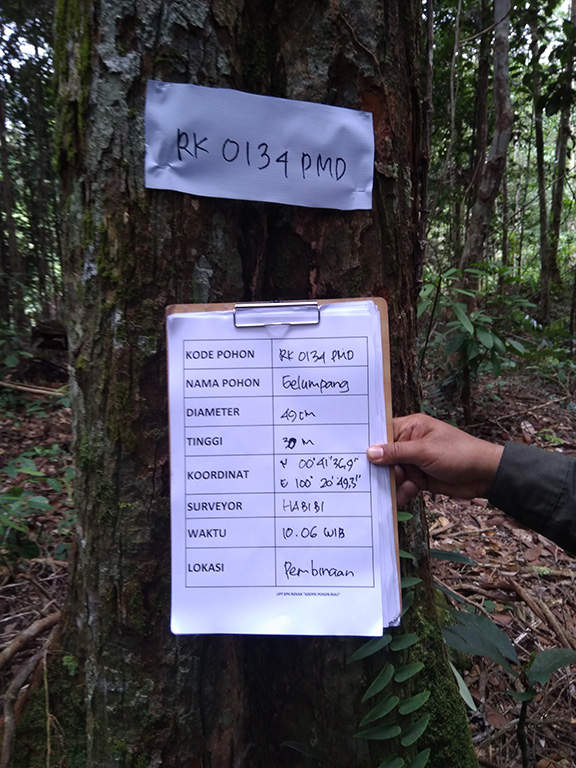 RK 0134 PMD
KODE POHON RK 0134 PMD
NAMA POHON Gelumpang
DIAMETER 49 cm
TINGGI 30 M
KOORDINAT N 00°41'36,9"
E 100° 20'49,3"
SURVEYOR HABIBI
WAKTU 10.06 WIB
LOKASI Pembinaan
UPT KPH ROKAN "ADOPSI POHON RIAU"